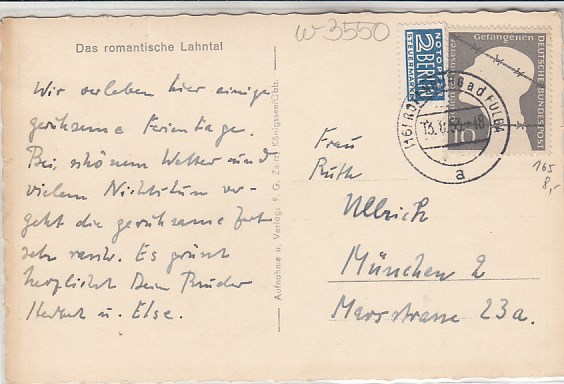 Das romantische Lahntal
w 3550
Wir verleben hier einige
geruhsame Ferientage.
Bei schönem Wetter und
vielem Nichtstun ver-
geht die geruhsame Zeit
sehr rasch. Es grüsst
herzlichst Dein Bruder
Herbert u. Else.
Aufnahme u. Verlag: F. G. Zeitz, Königssee/Obb.
NOTOPFER
2 BERLIN
STEUERMARKE
Gefangenen
DEUTSCHE BUNDESPOST
10
(16)
FULDA
a
165
8,-
Frau
Ruth
Ullrich
München 2
Marsstrasse 23a.